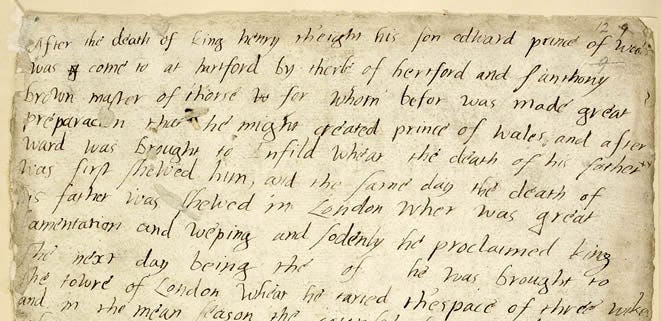 12 9
After the death of King henry theight his son edward prince of wales
was come to at hartford by therle of hertford and s anthony
brown master of thorse for whom befor was made great
preparacn that he might created prince of wales, and after
ward was brought to Infild whear the death of his father
was first shewed him, and the same day the death of
his father was shewed in London wher was great
lamentation and weping and sodenly he proclaimed king
The next day being the of he was brought to
the towre of London whear he taried thespace of three wekes
and in the mean season the